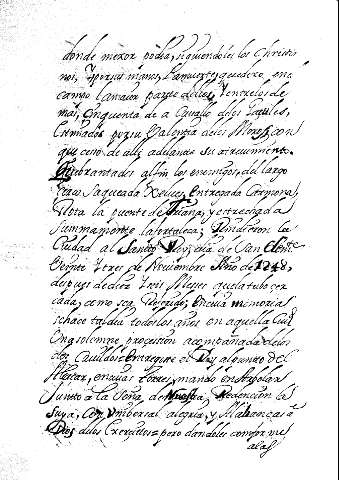 donde mexor podia, siguiendoles los Christia
nos, y por sus manos la muerte, quedero, en el
campo la maior parte dellos, y entre los de
mas, cinquenta de a Cauallo dellos Gazules,
Estimados por su Valentia de los Moros, con
que cesso de alli adelante su atreuimiento.
Quebrantados al fin los enemigos, del largo
cerco, Saqueada Gelues, Entregada Carmona,
Rota la puente de Triana, y estrechada
summamente la fortaleza; Rindieron la
Ciudad al Santo Rey, dia de San Clemte
Veinte y tres de Nouiembre Año de 1248,
despues de diez y seis Meses que la tubo cer
cada, como sea Referido, en cuia memoria
se hace todos los años en aquella Ciud
Vna solemne procession acompañada de los
dos Cauildos. Entregose el Rey al punto del
Alcazar, en cuias Torres, mando enarbolar
Junto a la Seña de Nuestra Redencion la
suya, Con Vnibersal alegria, y Alabanças a
Dios de los Exercitos = pero dandoles conforme
a las